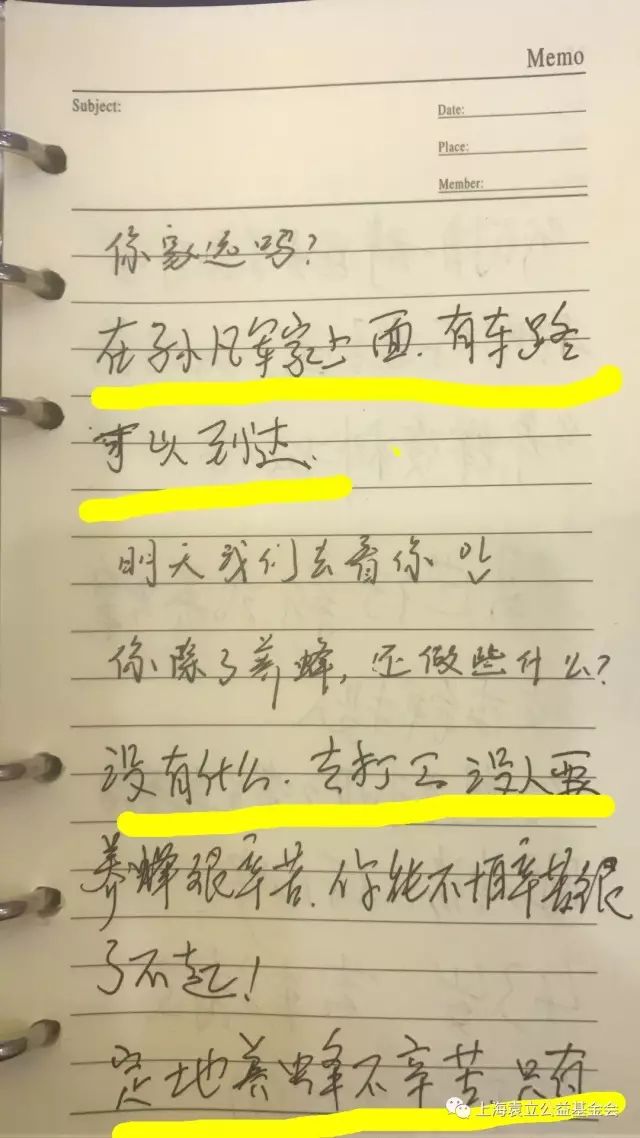 Memo
Subject:
Date:
Place:
Member:
你家远吗?
在孙凡军家上面.有车路
可以到达.
明天我们去看你
你除了养蜂,还做些什么?
没有什么.去打工没人要
养蜂很辛苦.你能不怕辛苦很
了不起!
定地养蜂不辛苦.只有
上海袁立公益基金会